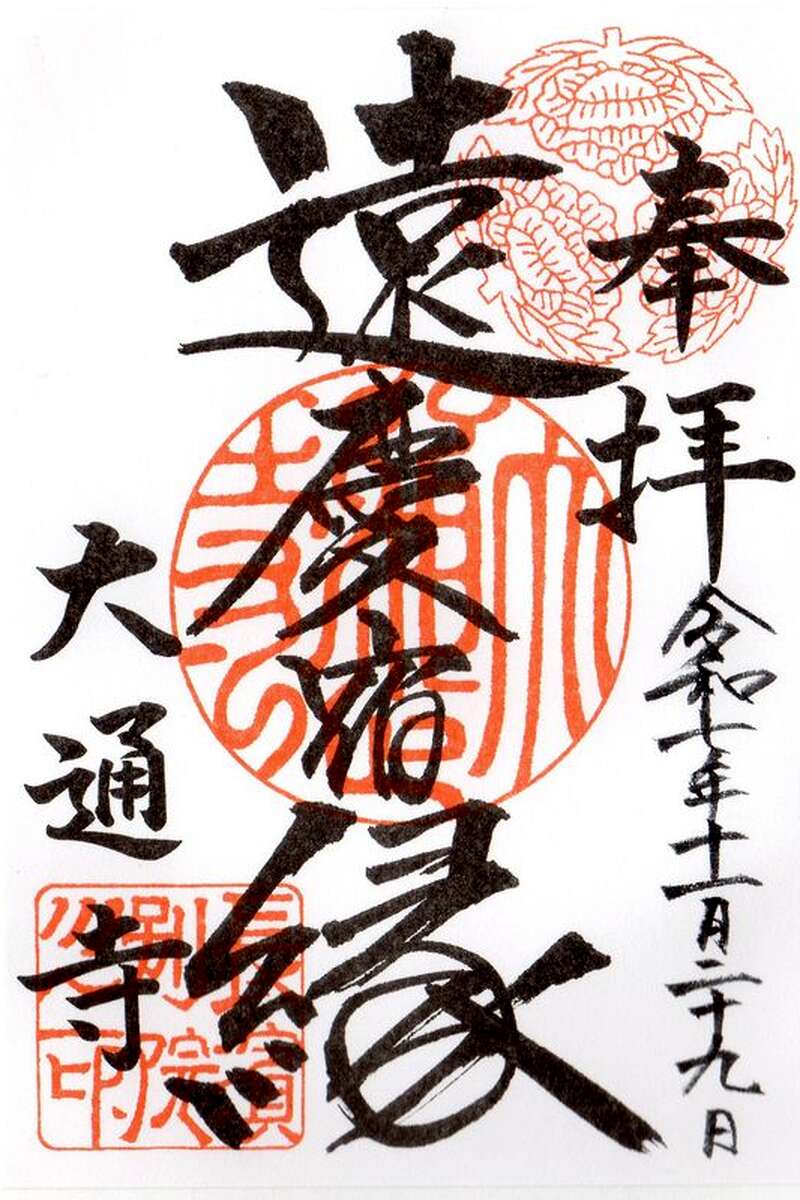 奉拝
令和七年十一月二十九日
遠慶宿縁
大通寺
大通寺
長濱別院之印